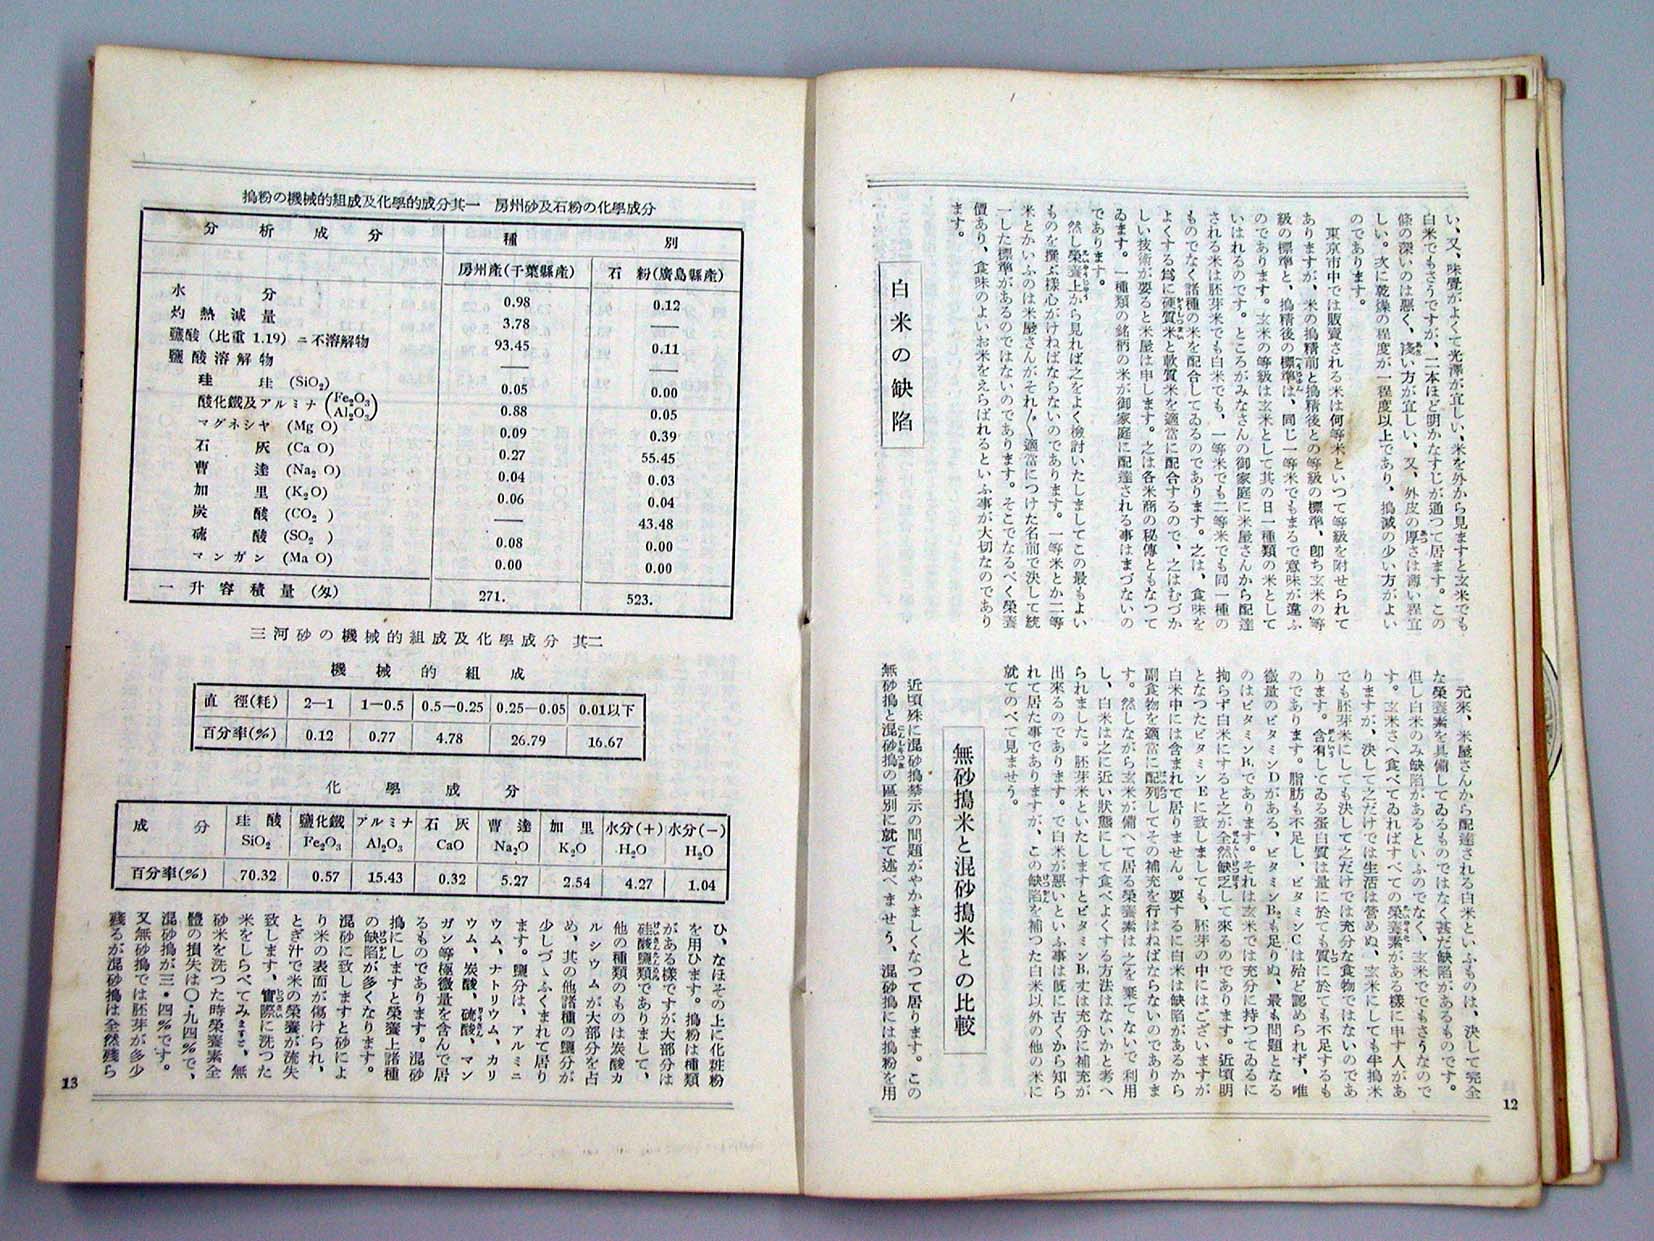 い、又、味覺がよくて光澤が宜しい、米を外から見ますと玄米でも
白米でもさうですが、二本ほど明かなすじが通つて居ます。この
條の深いのは惡く、淺い方が宜しい、又、外皮の厚さは薄い程宜
しい。次に乾燥の程度が一程度以上であり、搗減の少い方がよい
のであります。
東京市中では販賣される米は何等米といつて等級を附せられて
ありますが、米の搗精前と搗精後との等級の標準、卽ち玄米の等
級の標準と、搗精後の標準は、同じ一等米でもまるで意味が違ふ
のであります。玄米の等級は玄米として其の日一種類の米として
いはれるのです。ところがみなさんの御家庭に米屋さんから配達
される米は胚芽米でも白米でも、一等米でも二等米でも同一種の
ものでなく諸種の米を配合してゐるのであります。之は、食味を
よくする爲に硬質米と軟質米を適當に配合するので、之はむづか
しい技術が要ると米屋は申します。之は各米商の秘傳ともなつて
ゐます。一種類の銘柄の米が御家庭に配達される事はまづないの
であります。
然し榮養上から見れば之をよく檢討いたしましてこの最もよい
ものを撰ぶ樣心がけねばならないのであります。一等米とか二等
米とかいふのは米屋さんがそれ〴〵適當につけた名前で決して統
一した標準があるのではないのであります。そこでなるべく榮養
價あり、食味のよいお米をえらばれるといふ事が大切なのであり
ます。
白米の缺陷
元來、米屋さんから配達される白米といふものは、決して完全
な榮養素を具備してゐるものではなく甚だ缺陷があるものです。
但し白米のみ缺陷があるといふのでなく、玄米ででもさうなので
す。玄米さへ食べてゐればすべての榮養素がある樣に申す人があ
りますが、決して之だけでは生活は營めぬ、玄米にしても半搗米
でも胚芽米にしても決して之だけでは充分な食物ではないのであ
ります。含有してゐる蛋白質は量に於ても質に於ても不足するも
のであります。脂肪も不足し、ビタミンCは殆ど認められず、唯
微量のビタミンDがある、ビタミンB₂も足りぬ、最も問題となる
のはビタミンB₁であります。それは玄米では充分に持つてゐるに
拘らず白米にすると之が全然缺乏して來るのであります。近頃明
となつたビタミンEに致しましても、胚芽の中にはございますが
白米中には含まれて居りません。要するに白米は缺陷があるから
副食物を適當に配列してその補充を行はねばならないのでありま
す。然しながら玄米が備へて居る榮養素は之を棄てないで利用
し、白米は之に近い狀態にして食べよくする方法はないかと考へ
られました。胚芽米といたしますとビタミンB₁丈は充分に補充が
出來るのであります。で白米が惡いといふ事は旣に古くから知ら
れて居た事でありますが、この缺陷を補つた白米以外の他の米に
就てのべて見ませう。
無砂搗米と混砂搗米との比較
近頃殊に混砂搗禁示の問題がやかましくなつて居ります。この
無砂搗と混砂搗の區別に就て述べませう、混砂搗には搗粉を用
12
搗粉の機械的組成及化學的成分其一　房州砂及石粉の化學成分
分析成分　種別
房州產(千葉縣產)　石粉(廣島縣產)
水分　0.98　0.12
灼熱減量　3.78　——
鹽酸(比重 1.19)ニ不溶解物　93.45　0.11
鹽酸溶解物　——
珪　珪 (SiO₂)　0.05　0.00
酸化鐵及アルミナ (Fe₂O₃ Al₂O₃)　0.88　0.05
マグネシヤ (Mg O)　0.09　0.39
石灰 (Ca O)　0.27　55.45
曹達 (Na₂ O)　0.04　0.03
加里 (K₂O)　0.06　0.04
炭酸 (CO₂ )　——　43.48
硫酸 (SO₂ )　0.08　0.00
マンガン (Ma O)　0.00　0.00
一升容積量(匁)　271.　523.
三河砂の機械的組成及化學成分 其二
機械的組成
直徑(粍)　2—1　1—0.5　0.5—0.25　0.25—0.05　0.01以下
百分率(%)　0.12　0.77　4.78　26.79　16.67
化學成分
成分　珪酸 SiO₂　鹽化鐵 Fe₂O₃　アルミナ Al₂O₃　石灰 CaO　曹達 Na₂O　加里 K₂O　水分(+) H₂O　水分(−) H₂O
百分率(%)　70.32　0.57　15.43　0.32　5.27　2.54　4.27　1.04
ひ、なほその上に化粧粉
を用ひます。搗粉は種類
がある樣ですが大部分は
硅酸鹽類でありまして、
他の種類のものは炭酸カ
ルシウムが大部分を占
め、其の他諸種の鹽分が
少しづゝふくまれて居り
ます。鹽分は、アルミニ
ウム、ナトリウム、カリ
ウム、炭酸、硫酸、マン
ガン等極微量を含んで居
るものであります。混砂
搗にしますと榮養上諸種
の缺陷が多くなります。
混砂に致しますと砂によ
り米の表面が傷けられ、
とぎ汁で米の榮養が流失
致します、實際に洗つた
米をしらべてみますと、無
砂米を洗つた時榮養素全
體の損失は〇・九四%で、
混砂搗が三・四%です。
又無砂搗では胚芽が多少
殘るが混砂搗は全然殘ら
13